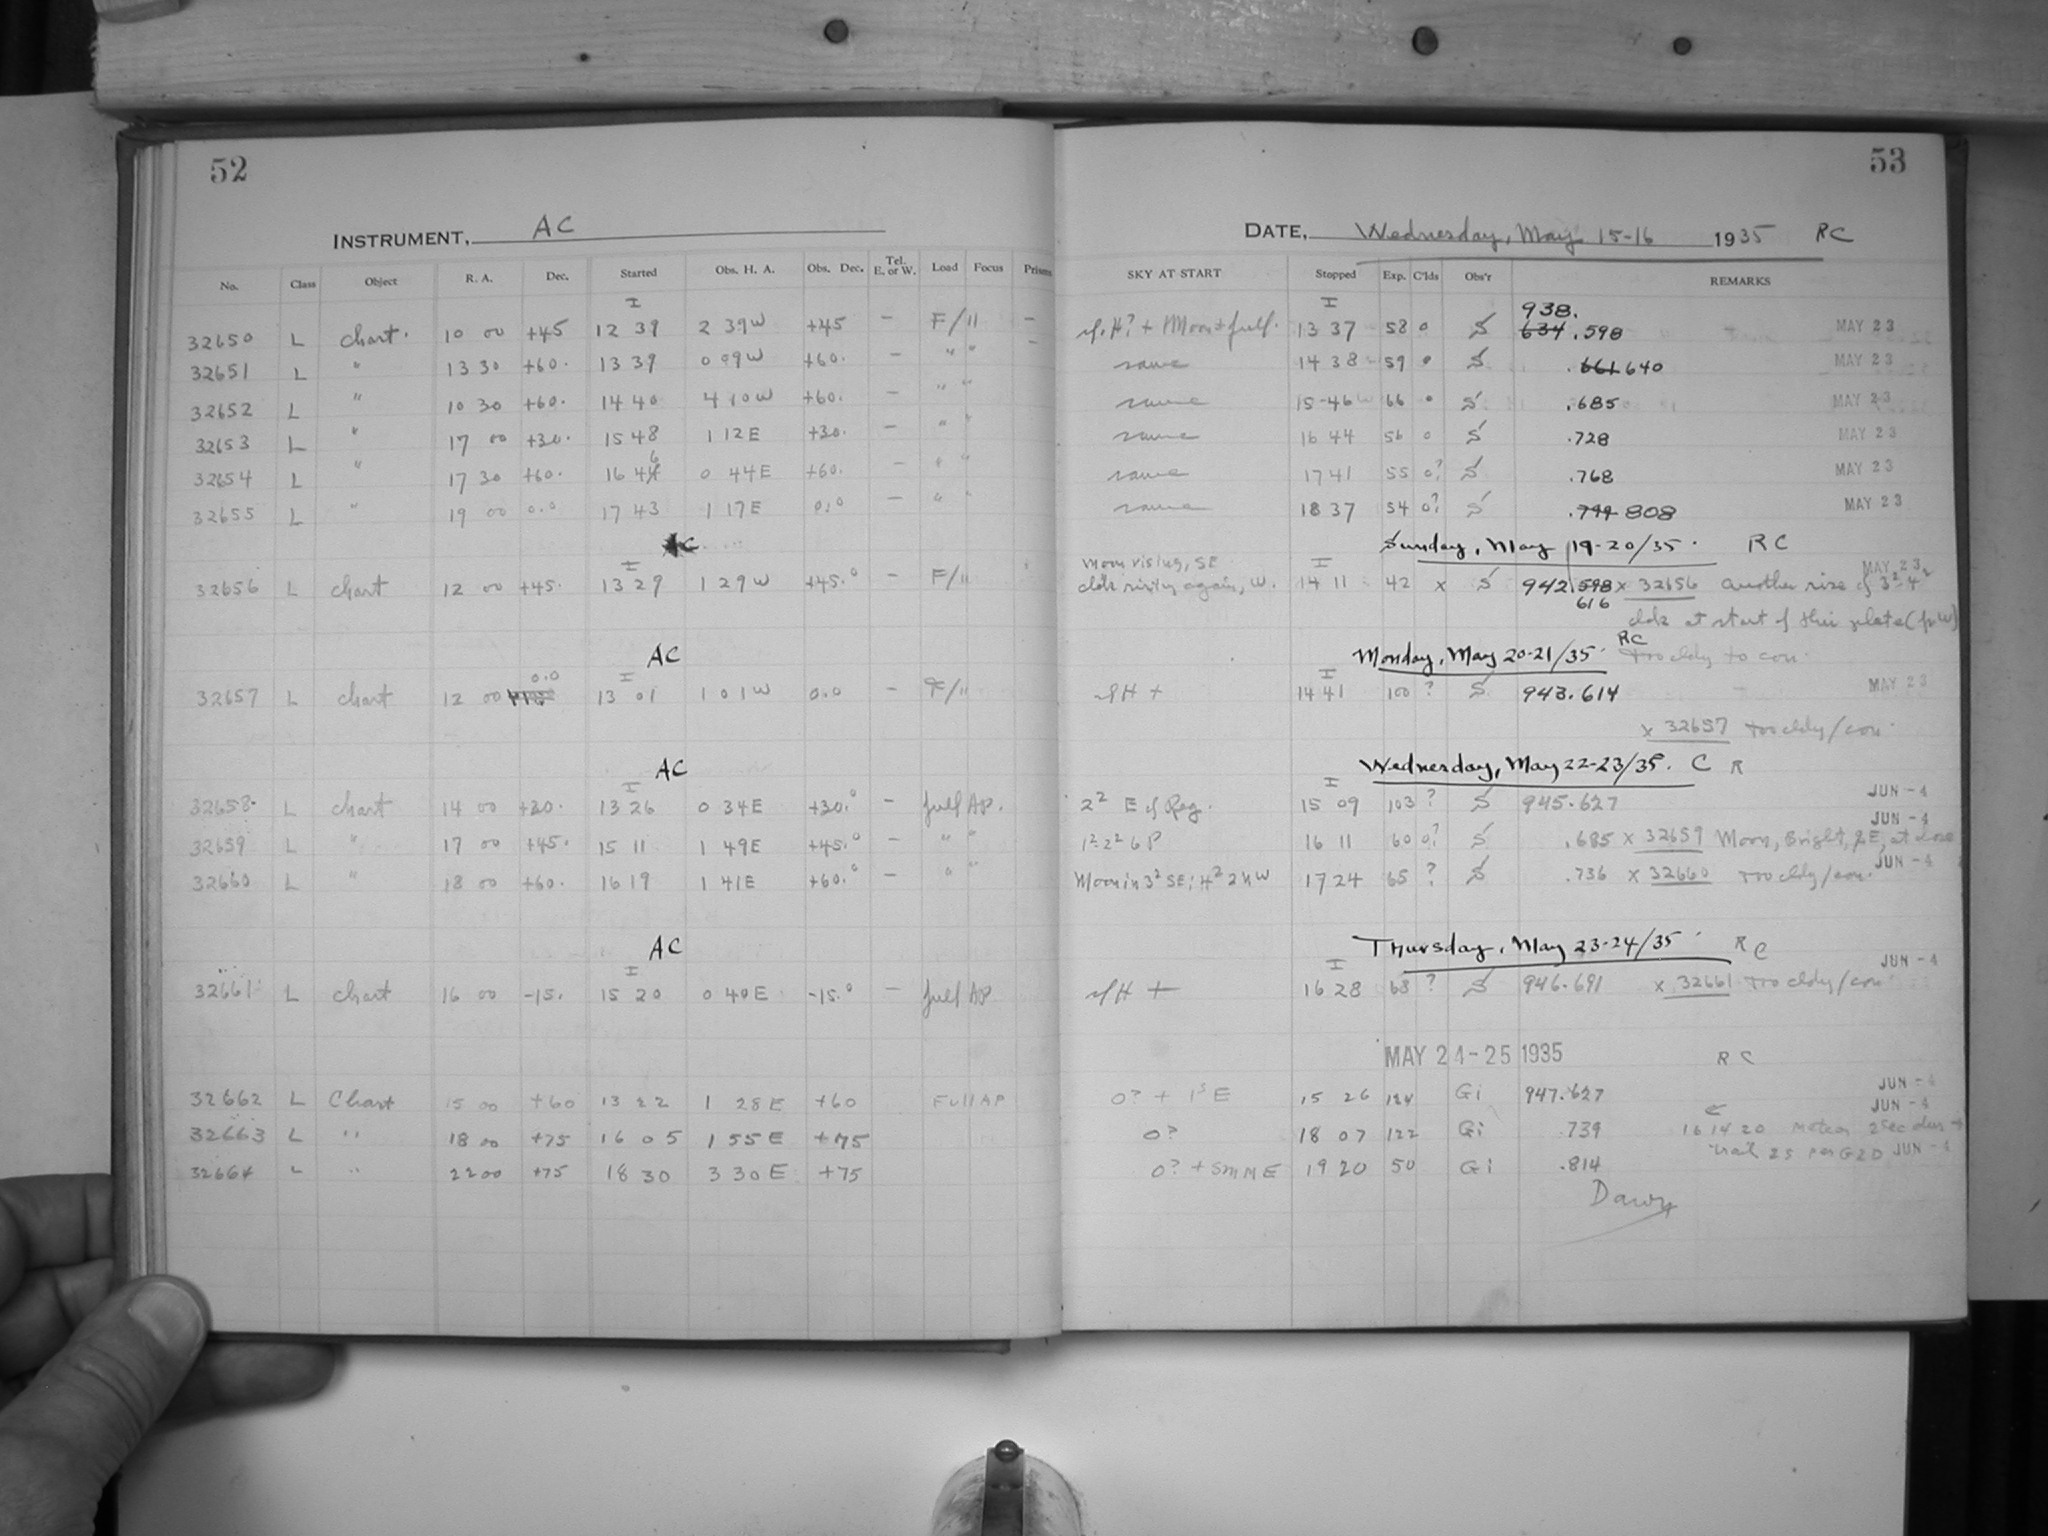 52
INSTRUMENT, AC
No. Class Object R. A. Dec. Started Obs. H. A. Obs. Dec. Tel. E. or W. Load Focus Prism
I
32650 L chart. 10 00 +45 12 39 2 39W +45 – F/11 –
32651 L " 13 30 +60. 13 39 0 09W +60. – " " –
32652 L " 10 30 +60. 14 40 4 10W +60. – " "
32653 L " 17 00 +30. 15 48 1 12E +30. – " "
32654 L " 17 30 +60. 16 46 0 44E +60. – " "
32655 L " 19 00 0.0 17 43 1 17E 0.0 – " "
AC
I
32656 L chart 12 00 +45. 13 29 1 29W +45.0 – F/11
AC
0.0
I
32657 L chart 12 00 13 01 1 01W 0.0 – F/11
AC
I
32658. L chart 14 00 +30. 13 26 0 34E +30.0 – full AP.
32659 L " 17 00 +45. 15 11 1 49E +45.0 – " "
32660 L " 18 00 +60. 16 19 1 41E +60.0 – " "
AC
I
32661 L chart 16 00 -15. 15 20 0 40E -15.0 – full AP
32662 L Chart 15 00 +60 13 22 1 28E +60 Full AP
32663 L " 18 00 +75 16 05 1 55E +75
32664 L " 22 00 +75 18 30 3 30E +75
53
DATE, Wednesday, May 15-16 1935 RC
SKY AT START Stopped Exp. C'lds Obs'r REMARKS
I 938.
H? + Moon + full. 13 37 58 0 S 634 .598 MAY 23
same 14 38 59 0 S .661 640 MAY 23
same 15 46 66 0 S .685 MAY 23
same 16 44 56 0 S .728 MAY 23
same 17 41 55 0? S .768 MAY 23
same 18 37 54 0? S .799 808 MAY 23
Sunday, May 19-20/35. RC
moon rising, SE I MAY 23
clds rising again, W. 14 11 42 x S 942.598 x 32656 another rise of 3²-4²
616
clds at start of this plate (fr W)
Monday, May 20-21/35. RC Too cldy to con.
I
H + 14 41 100 ? S 943.614 MAY 23
x 32657 Too cldy/con.
Wednesday, May 22-23/35. C R
I JUN -4
2² E of Reg. 15 09 103 ? S 945.627
JUN -4
1²-2² 6 P 16 11 60 0? S .685 x 32659 Moon, Bright, E, at close
JUN -4
Moon in 3² SE; 4² 2 NW 17 24 65 ? S .736 x 32660 Too cldy/con.
Thursday, May 23-24/35. R C
I JUN -4
H + 16 28 68 ? S 946.691 x 32661 Too cldy/con
MAY 24-25 1935 R C
JUN -4
0? + 1⁵ E 15 26 124 Gi 947.627
JUN -4
0? 18 07 122 Gi .739 16 14 20 Meteor 2 sec dur +
trail 25 JUN -4
0? + 5mm E 19 20 50 Gi .814
Dawn